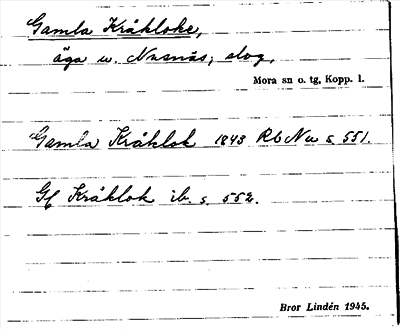 Gamla Kråkloke,
äga u. Nusnäs, skog,
Mora sn o. tg, Kopp. l.
Gamla Kråklok 1843 RbNu s. 551.
Gl Kråklok ib. s. 552.
Bror Lindén 1945.